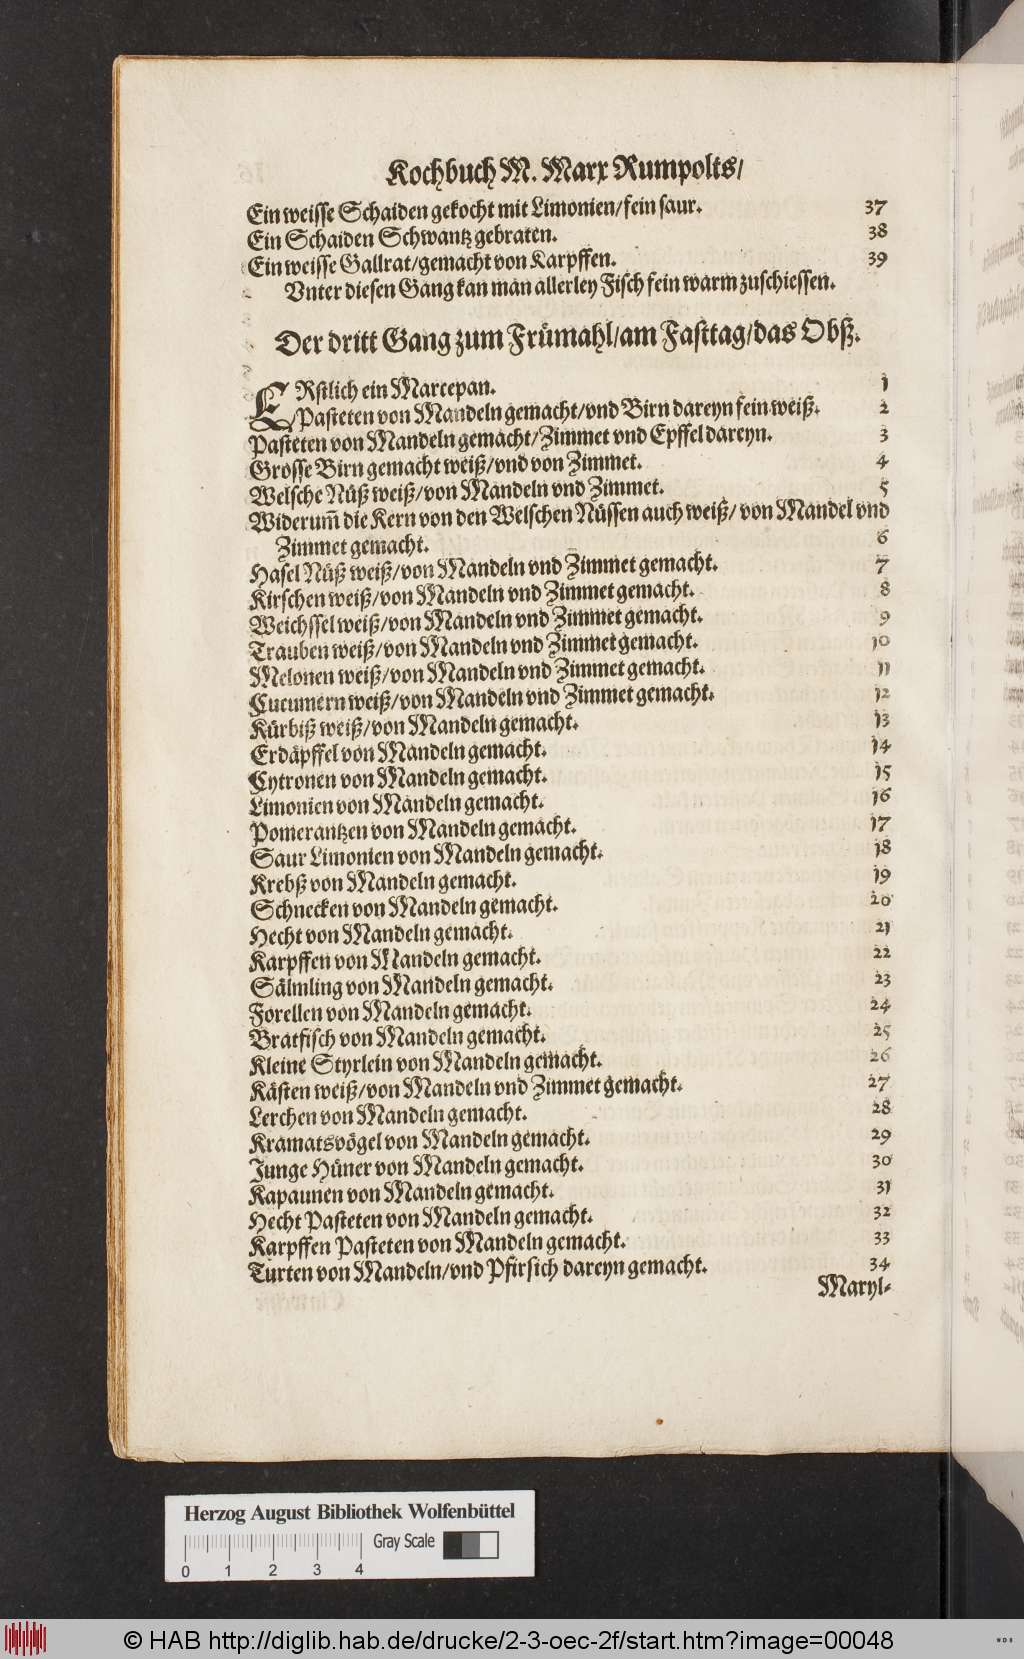 Kochbuch M. Marx Rumpolts/
Ein weisse Schaiden gekocht mit Limonien/fein saur. 37
Ein Schaiden Schwantz gebraten. 38
Ein weisse Gallrat/gemacht von Karpffen. 39
Vnter diesen Gang kan man allerley Fisch fein warm zuschiessen.
Der dritt Gang zum Frümahl/am Fasttag/das Obß.
ERstlich ein Marcepan. 1
Pasteten von Mandeln gemacht/vnd Birn dareyn fein weiß. 2
Pasteten von Mandeln gemacht/Zimmet vnd Epffel dareyn. 3
Grosse Birn gemacht weiß/vnd von Zimmet. 4
Welsche Nüß weiß/von Mandeln vnd Zimmet. 5
Widerum̃ die Kern von den Welschen Nüssen auch weiß/ von Mandel vnd
Zimmet gemacht. 6
Hasel Nüß weiß/von Mandeln vnd Zimmet gemacht. 7
Kirschen weiß/von Mandeln vnd Zimmet gemacht. 8
Weichssel weiß/von Mandeln vnd Zimmet gemacht. 9
Trauben weiß/von Mandeln vnd Zimmet gemacht. 10
Melonen weiß/von Mandeln vnd Zimmet gemacht. 11
Cucumern weiß/von Mandeln vnd Zimmet gemacht. 12
Kürbiß weiß/von Mandeln gemacht. 13
Erdäpffel von Mandeln gemacht. 14
Cytronen von Mandeln gemacht. 15
Limonien von Mandeln gemacht. 16
Pomerantzen von Mandeln gemacht. 17
Saur Limonien von Mandeln gemacht. 18
Krebß von Mandeln gemacht. 19
Schnecken von Mandeln gemacht. 20
Hecht von Mandeln gemacht. 21
Karpffen von Mandeln gemacht. 22
Sälmling von Mandeln gemacht. 23
Forellen von Mandeln gemacht. 24
Bratfisch von Mandeln gemacht. 25
Kleine Styrlein von Mandeln gemacht. 26
Kästen weiß/von Mandeln vnd Zimmet gemacht. 27
Lerchen von Mandeln gemacht. 28
Kramatsvögel von Mandeln gemacht. 29
Junge Hüner von Mandeln gemacht. 30
Kapaunen von Mandeln gemacht. 31
Hecht Pasteten von Mandeln gemacht. 32
Karpffen Pasteten von Mandeln gemacht. 33
Turten von Mandeln/vnd Pfirsich dareyn gemacht. 34
Maryl-
Herzog August Bibliothek Wolfenbüttel
Gray Scale
0 1 2 3 4
© HAB http://diglib.hab.de/drucke/2-3-oec-2f/start.htm?image=00048